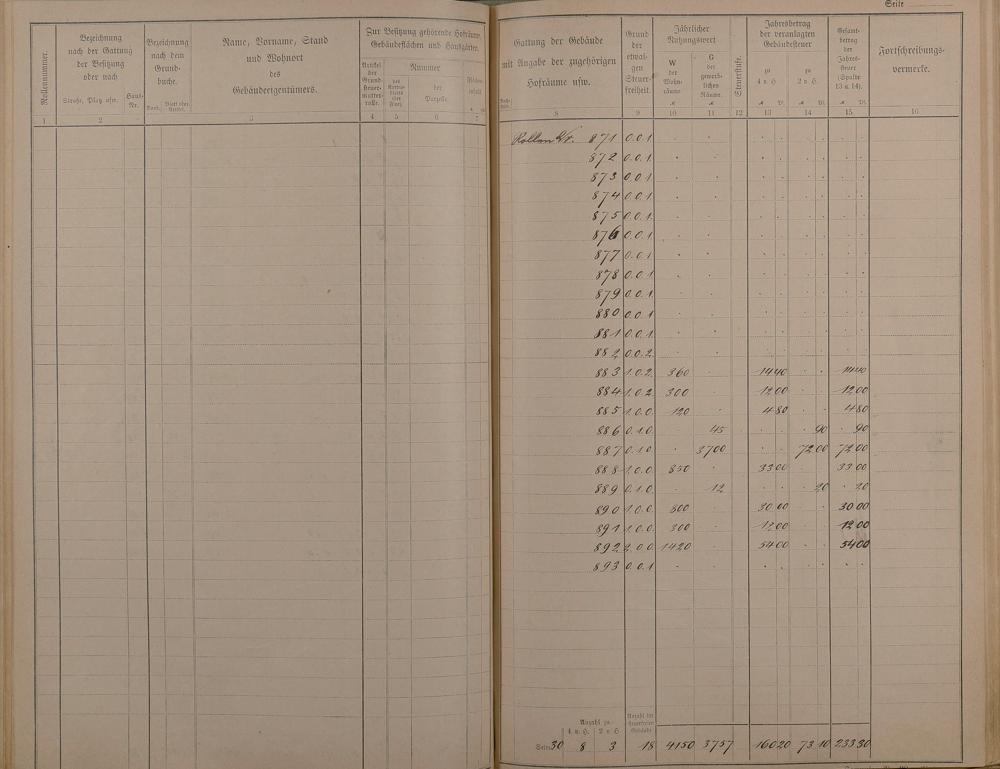 Seite
Rollennummer.
Bezeichnung
nach der Gattung
der Besitzung
oder nach
Straße, Platz usw.
Haus-
Nr.
Bezeichnung
nach dem
Grund-
buche.
Band.
Blatt oder
Artikel.
Name, Vorname, Stand
und Wohnort
des
Gebäudeeigentümers.
Zur Besitzung gehörende Hofräume,
Gebäudeflächen und Hausgärten.
Artikel
der
Grund-
steuer-
mutter-
rolle.
Nummer
des
Karten-
blatts
(der
Flur).
der
Parzelle.
Flächen-
inhalt
1 2 3 4 5 6 7
Gattung der Gebäude
mit Angabe der zugehörigen
Hofräume usw.
Grund
der
etwai-
gen
Steuer-
freiheit.
Jährlicher
Nutzungswert
W
der
Wohn-
räume
G
der
gewerb-
lichen
Räume.
Steuerstufe.
Jahresbetrag
der veranlagten
Gebäudesteuer
zu
4 v. H.
zu
2 v. H.
Gesamt-
betrag
der
Jahres-
steuer
(Spalte
13 u. 14).
Fortschreibungs-
vermerke.
8 9 10 11 12 13 14 15 16
Rollen Nr. 871 0.0.1
872 0.0.1 . .
873 0.0.1 . .
874 0.0.1 . .
875 0.0.1. . .
876 0.0.1. . .
877 0.0.1 . .
878 0.0.1 . .
879 0.0.1. . .
880 0.0.1 . .
881 0.0.1. . .
882 0.0.2. . .
883 1.0.2. 360 . 14 40 . . 14 40
884 1.0.2 300 . 12 00 . . 12 00
885 1.0.0. 120 . 4 80 . . 4 80
886 0.1.0. . 45 . . 90 . 90
887 0.1.0 . 3700 . . 72 00 72 00
888 1.0.0 850 . 33 00 . . 33 00
889 0.1.0. . 12 . . 20 . 20
890 1.0.0. 800 . 30 00 . . 30 00
891 1.0.0. 300 . 12 00 . . 12 00
892 2.0.0 1420 . 54 00 . . 54 00
893 0.0.1 . . . . . . .
Anzahl zu
4 v. H. 2 v. H.
Anzahl der
steuerfreien
Gebäude
Seite 30 8 3 18 4150 3757 160 20 73 10 233 30